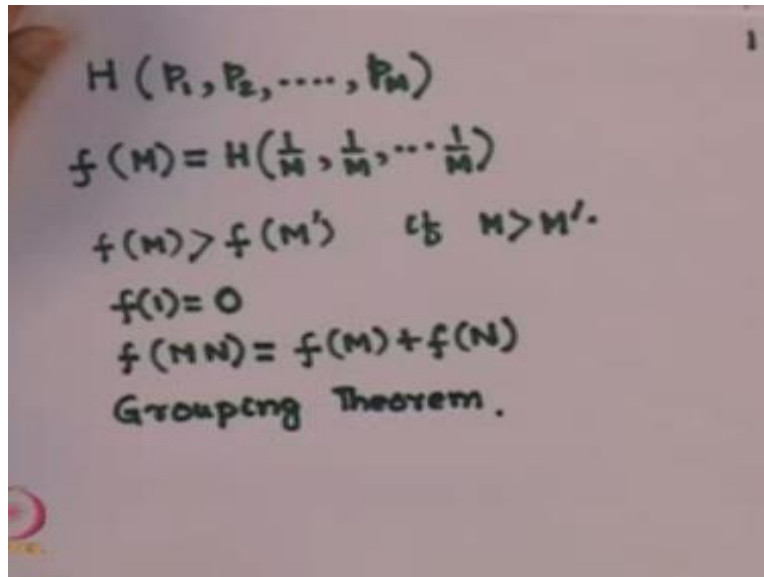 1
H (P₁, P₂, ...., Pₘ)
f (M) = H(1/M, 1/M, ... 1/M)
f (M) > f (M') if M > M'.
f(1) = 0
f (MN) = f(M) + f(N)
Grouping Theorem.